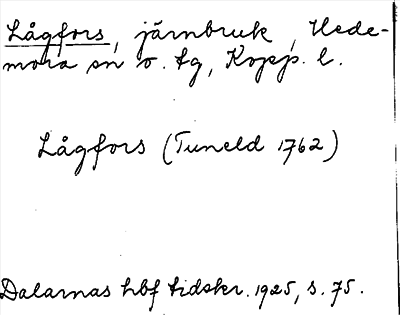 Lågfors, järnbruk, Hede-
mora sn o. tg, Kopp. l.
Lågfors (Tuneld 1762)
Dalarnas hbf tidskr. 1925, s. 75.